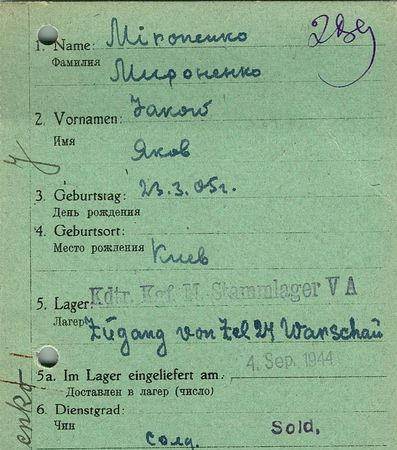 1. Name: Mironenko
Фамилия Мироненко
2. Vornamen: Jakow
Имя Яков
3. Geburtstag: 23.3.05г.
День рождения
4. Geburtsort:
Место рождения Киев
Kdtr. Kgf. M. Stammlager V A
5. Lager:
Лагерь Zugang von Zel 24 Warschau
4. Sep. 1944
5a. Im Lager eingeliefert am
Доставлен в лагерь (число)
6. Dienstgrad:
Чин солд. Sold.